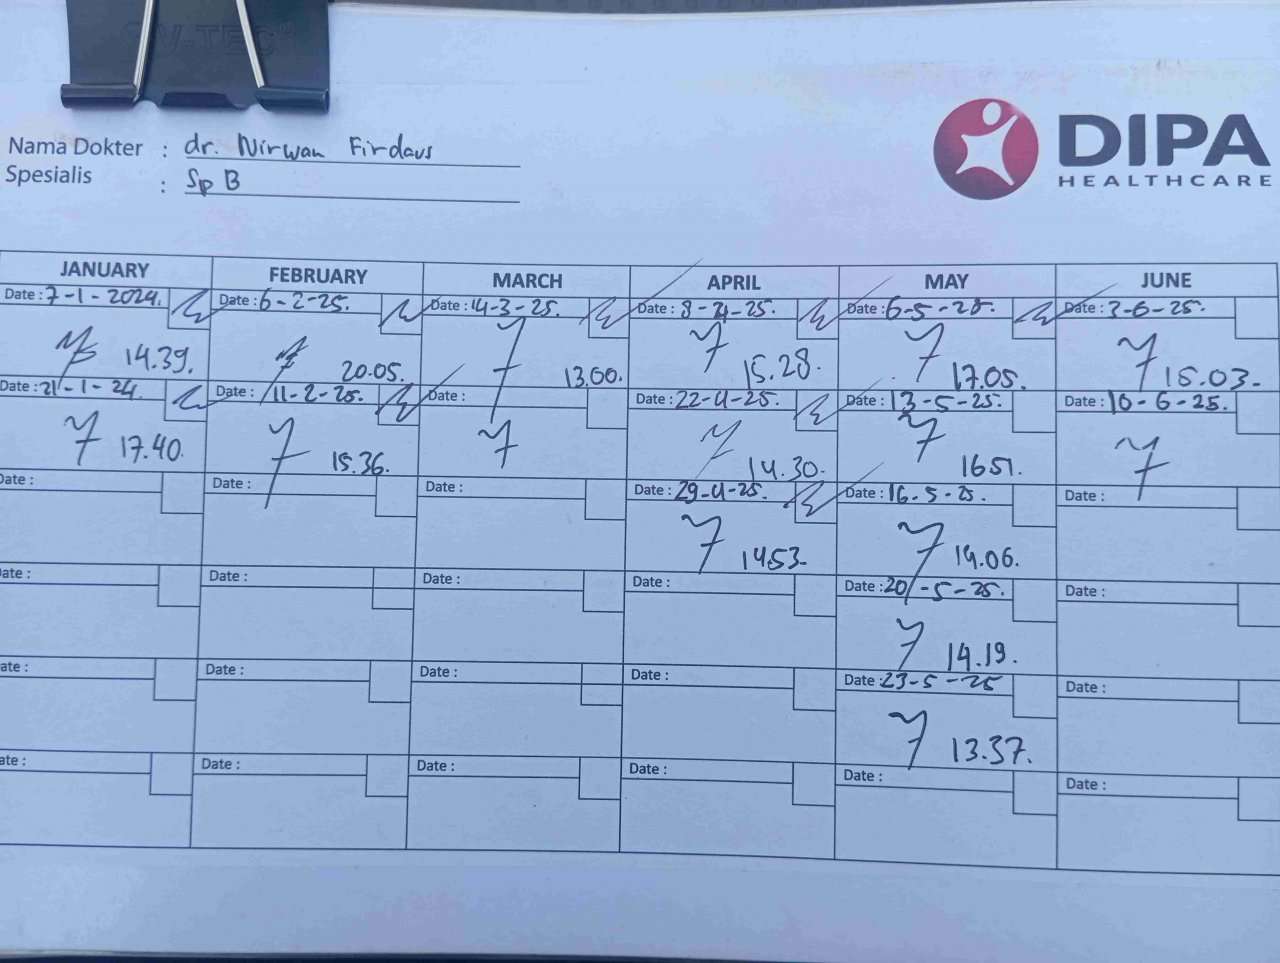 Nama Dokter : dr. Nirwan Firdaus
Spesialis : Sp B
DIPA
HEALTHCARE
JANUARY FEBRUARY MARCH APRIL MAY JUNE
Date : 7-1-2024. Date : 6-2-25. Date : 14-3-25. Date : 8-4-25. Date : 6-5-25. Date : 3-6-25.
14.39. 20.05. 13.00. 15.28. 17.05. 15.03.
Date : 21-1-24. Date : 11-2-25. Date : Date : 22-4-25. Date : 13-5-25. Date : 10-6-25.
17.40. 15.36. 14.30. 1651.
Date : Date : Date : Date : 29-4-25. Date : 16-5-25. Date :
1453. 14.06.
Date : Date : Date : Date : Date : 20-5-25. Date :
14.19.
Date : Date : Date : Date : Date : 23-5-25 Date :
13.37.
Date : Date : Date : Date : Date : Date :